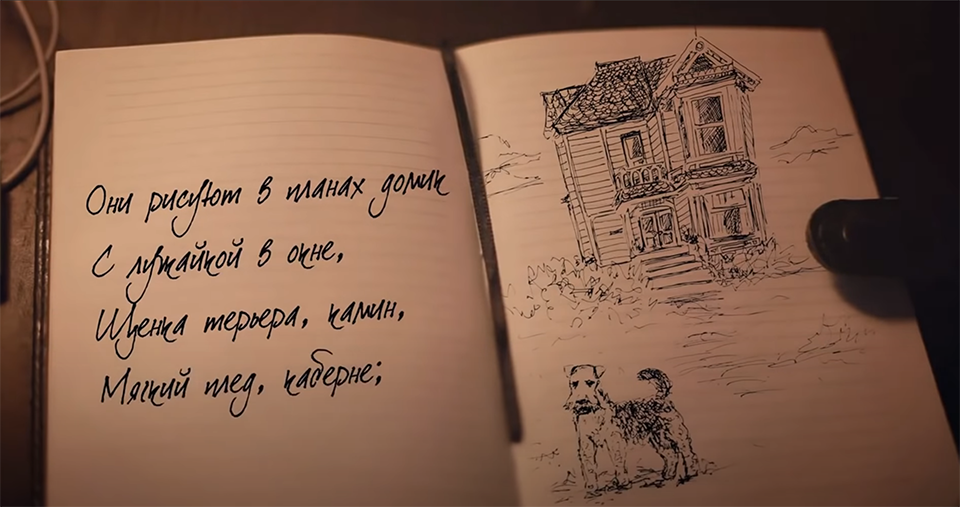 Они рисуют в планах домик
С лужайкой в окне,
Щенка терьера, камин,
Мягкий плед, каберне;